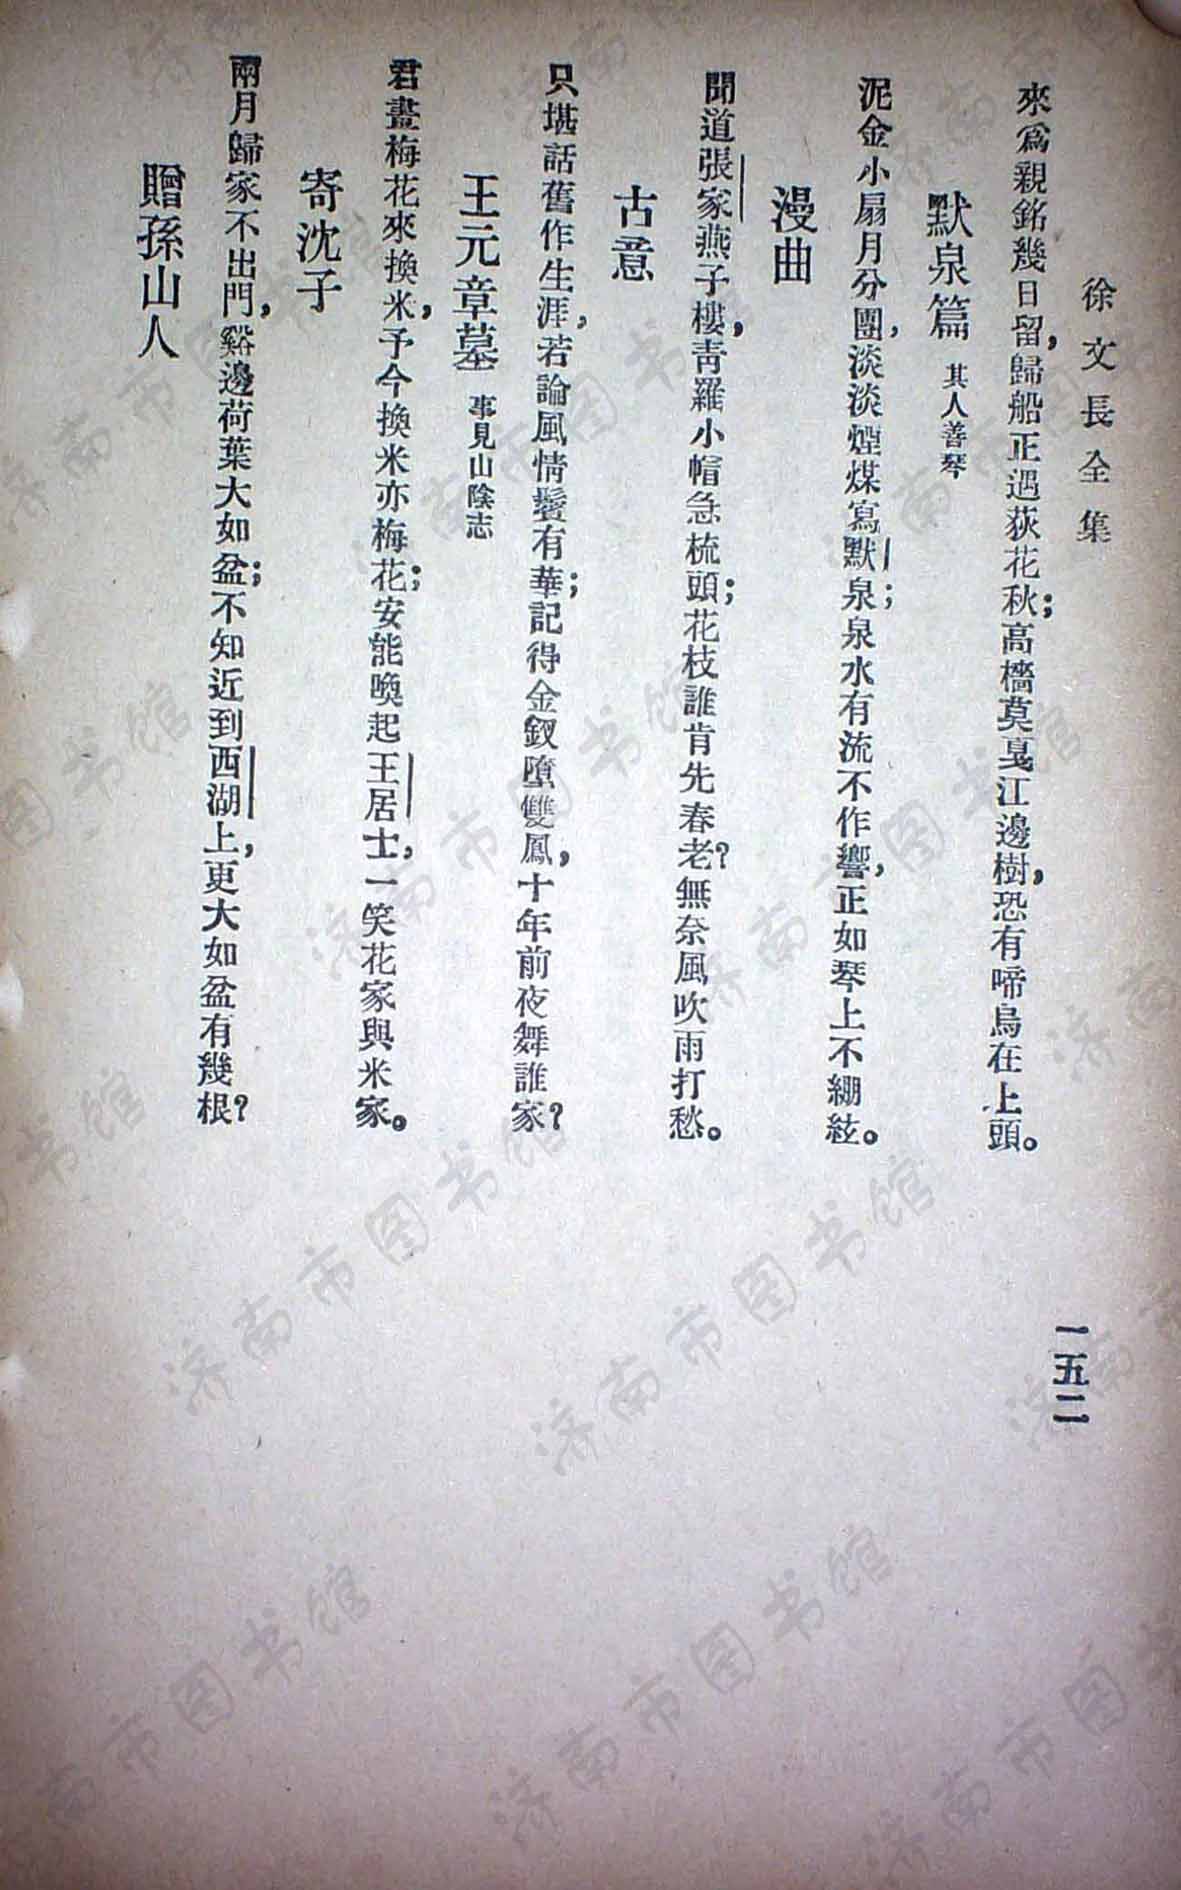 徐文長全集
一五二
來爲親銘幾日留，歸船正遇荻花秋；高檣莫戛江邊樹，恐有啼烏在上頭。
默泉篇 其人善琴
泥金小扇月分團，淡淡煙煤寫默泉；泉水有流不作響，正如琴上不綳絃。
漫曲
聞道張家燕子樓，靑羅小帽急梳頭；花枝誰肯先春老？無奈風吹雨打愁。
古意
只堪話舊作生涯，若論風情鬢有華；記得金釵墮雙鳳，十年前夜舞誰家？
王元章墓 事見山陰志
君畫梅花來換米，予今換米亦梅花；安能喚起王居士，一笑花家與米家。
寄沈子
兩月歸家不出門，谿邊荷葉大如盆；不知近到西湖上，更大如盆有幾根？
贈孫山人
济南市图书馆